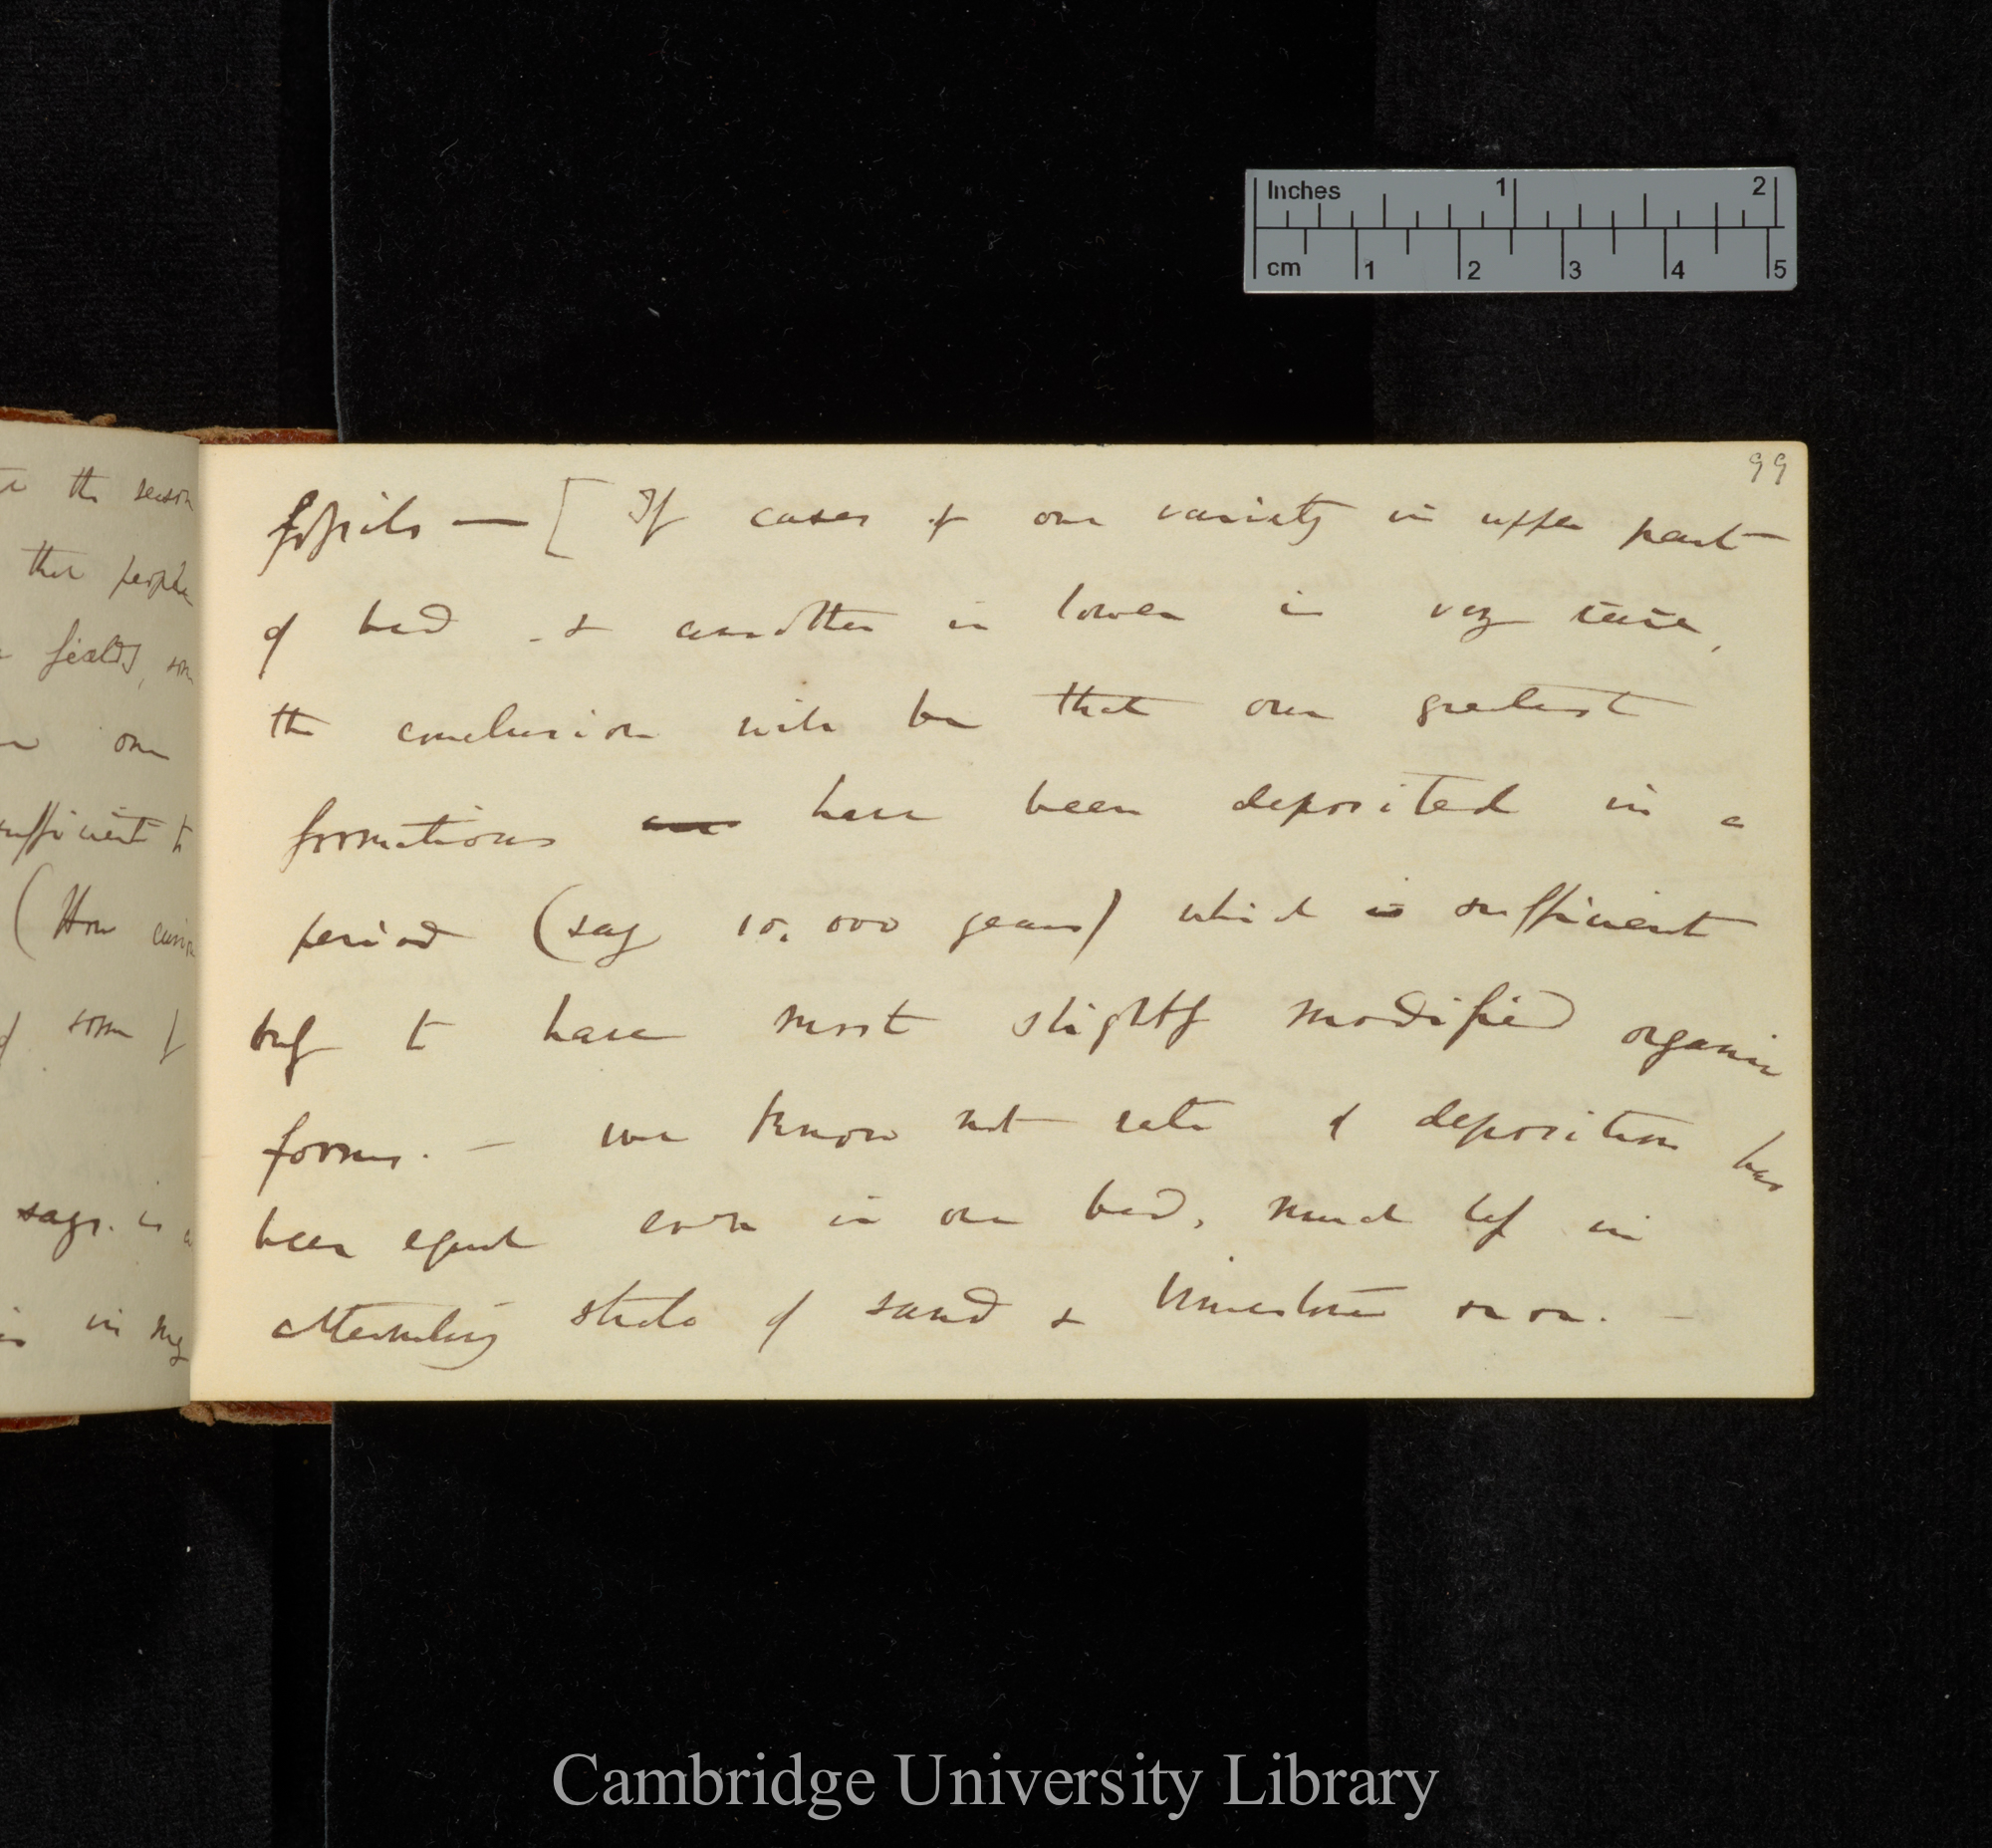 Inches 1 2
cm 1 2 3 4 5
99
the season
ther people
fields, som
one
sufficient t
(How curio
some f
says. is a
is in my
fossils — [ If cases of one variety in upper part
of bed - & another in lower is very rare,
the conclusion will be that our greatest
formations have been deposited in a
period (say 10,000 years) which is sufficient
only to have most slightly modified organic
forms. — we know not rate of deposition has
been equal even in one bed, much less in
alternating strata of sand & limestone on on. —
Cambridge University Library